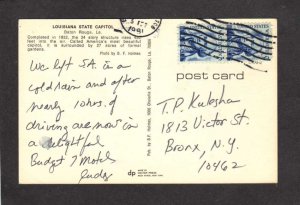 LOUISIANA STATE CAPITOL
Baton Rouge, La.
Completed in 1932, the 34 story structure rises 450
feet into the air. Called America's most beautiful
capitol, it is surrounded by 27 acres of formal
gardens.
Photo by D. F. Holmes
We left S.A. in a
cold rain and after
nearly 10 hrs. of
driving are now in
a delightful
Budget 7 Motels
Judy
1981
UNITED STATES
post card
T.P. Kubsha
1813 Victor St.
Bronx, N.Y.
10462
dp